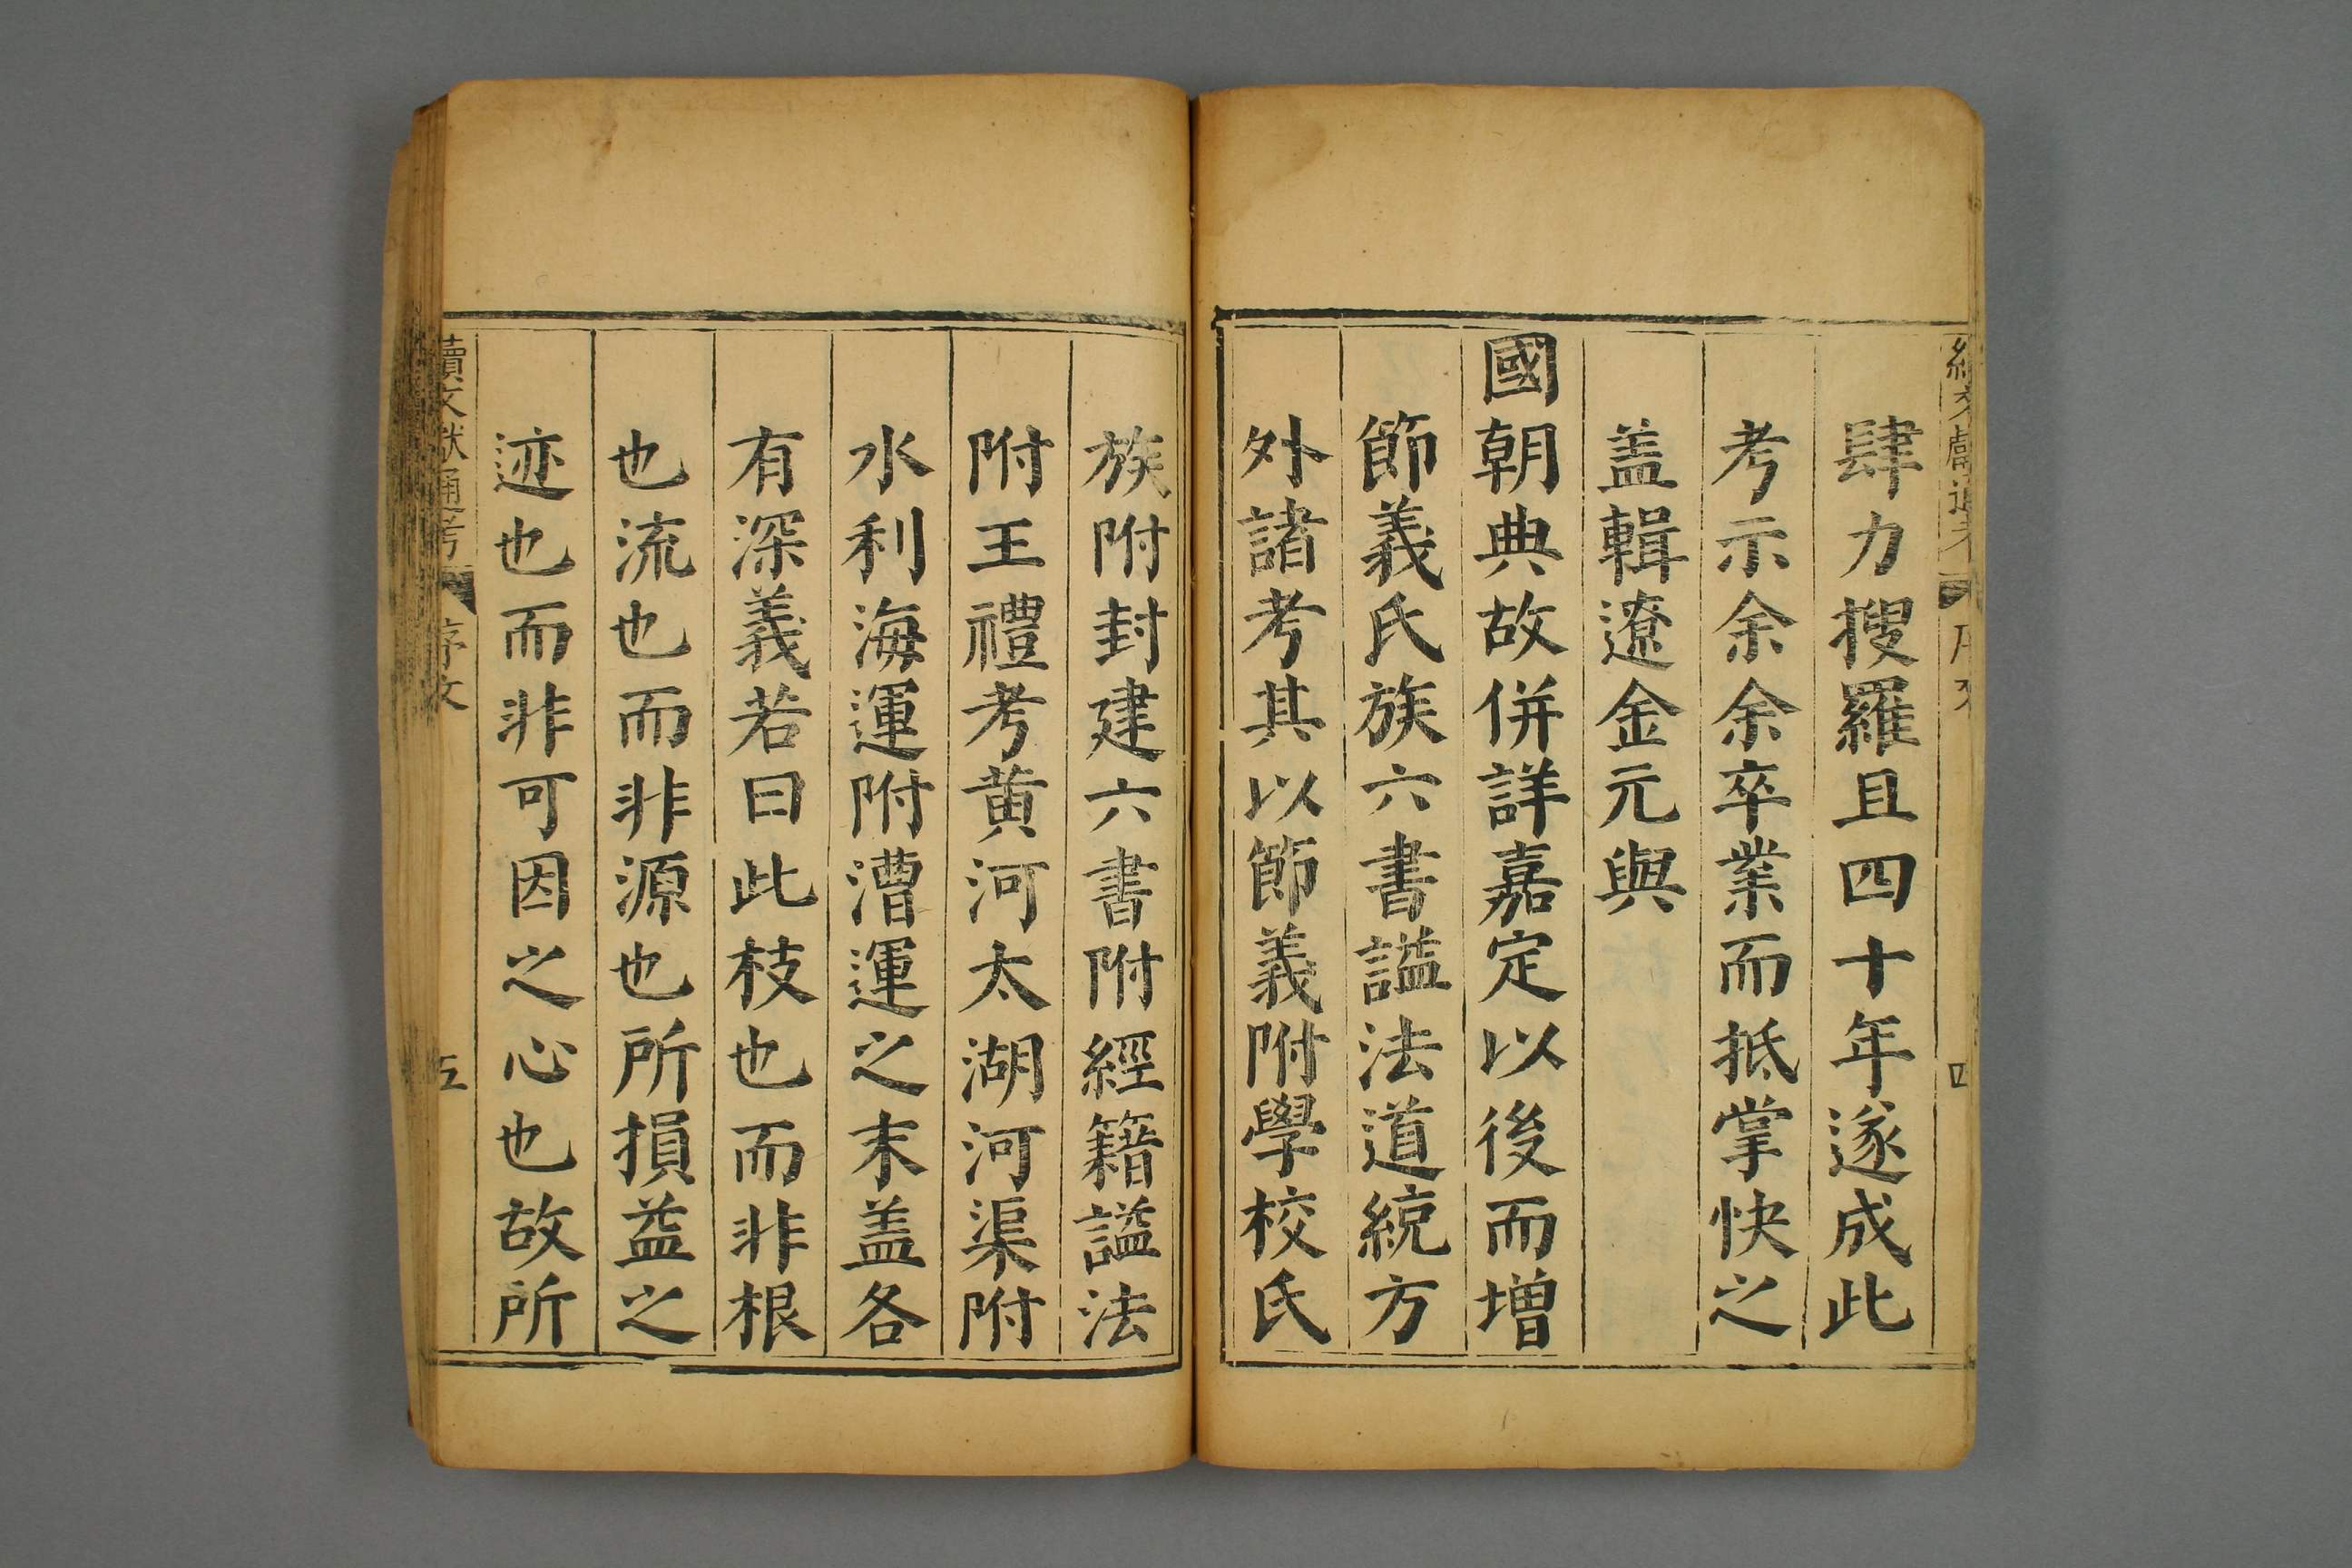 肆力搜羅且四十年遂成此
考示余余卒業而抵掌快之
盖輯遼金元與
國朝典故併詳嘉定以後而增
節義氏族六書謚法道統方
外諸考其以節義附學校氏
族附封建六書附經籍謚法
附王禮考黄河太湖河渠附
水利海運附漕運之末盖各
有深義若曰此枝也而非根
也流也而非源也所損益之
迹也而非可因之心也故所
續文献通考 序文 五